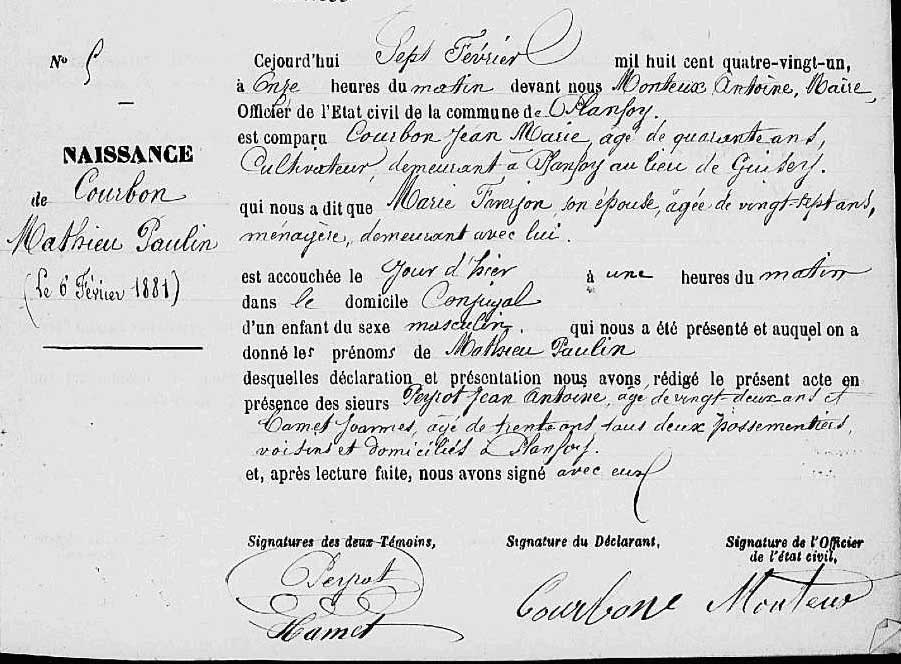 Nº 5
NAISSANCE
de Courbon
Mathieu Paulin
(Le 6 Février 1881)
Cejourd'hui Sept Février mil huit cent quatre-vingt-un,
à Onze heures du matin devant nous Monteux Antoine, Maire,
Officier de l'Etat civil de la commune de Planfoy.
est comparu Courbon Jean Marie, âgé de quarante ans,
Cultivateur, demeurant à Planfoy au lieu de Guisey.
qui nous a dit que Marie Faverjon, son épouse, âgée de vingt-sept ans,
ménagère, demeurant avec lui.
est accouchée le Jour d'hier à une heures du matin
dans le domicile Conjugal
d'un enfant du sexe masculin. qui nous a été présenté et auquel on a
donné les prénoms de Mathieu Paulin
desquelles déclaration et présentation nous avons rédigé le présent acte en
présence des sieurs Peyrot Jean Antoine, âgé de vingt-deux ans et
Hamet Joannes, âgé de trente ans tous deux possementiers,
voisins et domiciliés à Planfoy.
et, après lecture faite, nous avons signé avec eux
Signatures des deux Témoins,
Peyrot
Hamet
Signature du Déclarant,
Courbone
Signature de l'Officier
de l'état civil,
Monteux